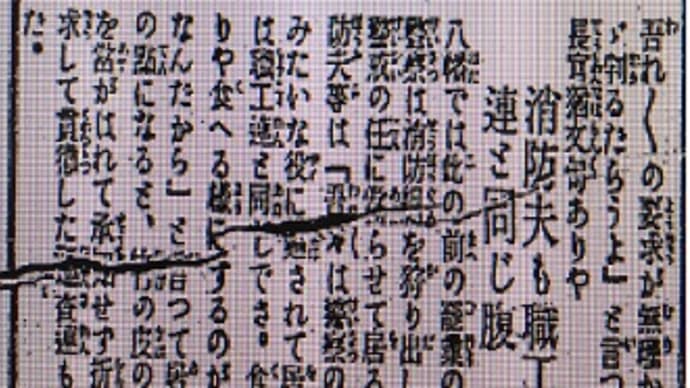 吾れ〱の要求が無理か
ゞ判るだらうよ」と言つ
長官ありや
消防夫も職工
連と同じ腹
八幡では此の前の罷業の
警察は消防組を狩り出し
警戒の任に當らせて居る
防夫等は「吾々は警察の
みたいな役に廻されて居
は職工達と同じでさ。食
りや食へる樣にするのが
なんだから」と言つて
の點になると、の皮の
を當がはれて承知せず折
求して貫徹した査連も
た。